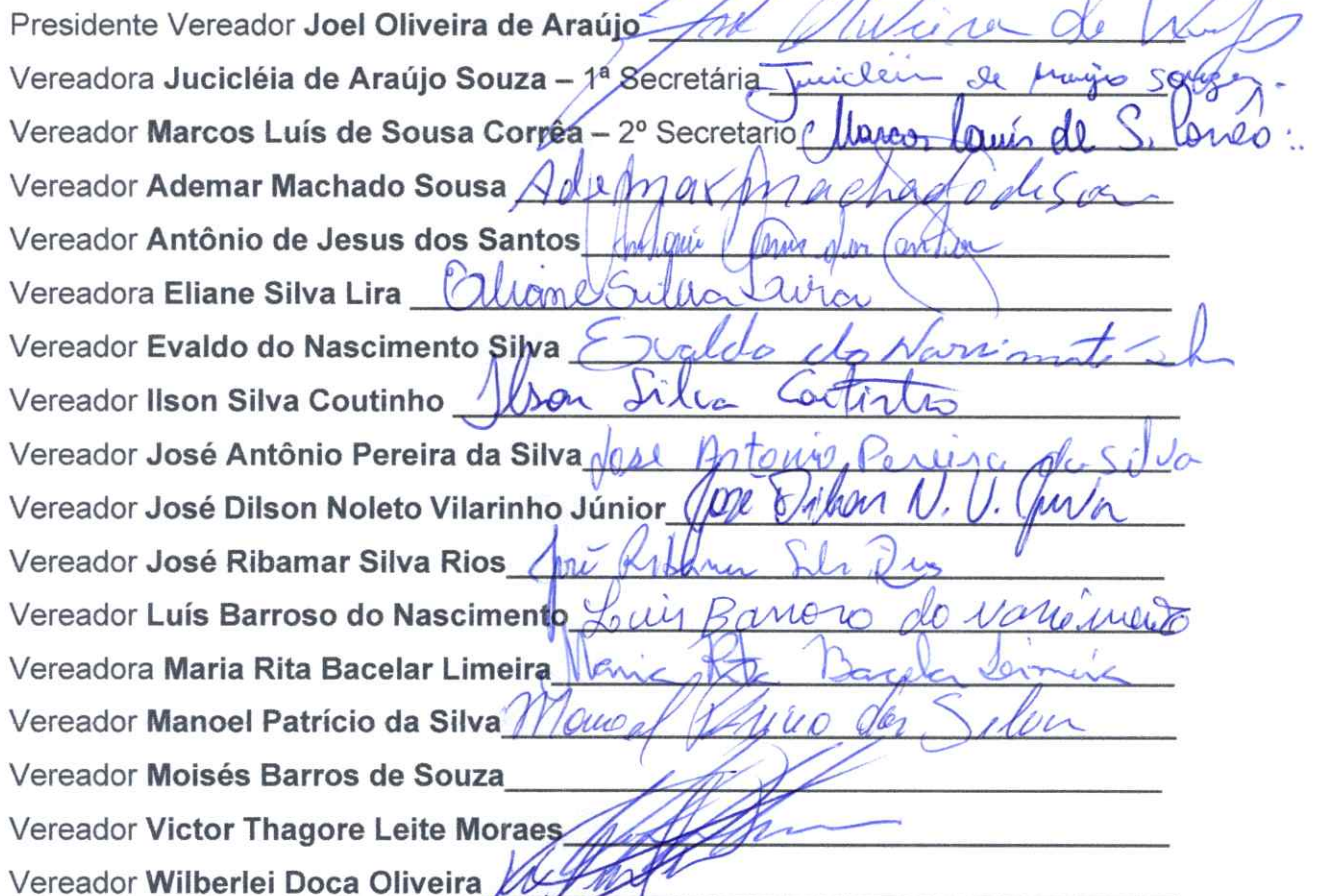 Presidente Vereador Joel Oliveira de Araújo Oliveira de
Vereadora Jucicléia de Araújo Souza – 1ª Secretária Jucicleia de Araújo Souza
Vereador Marcos Luís de Sousa Corrêa – 2º Secretario Marcos Louis de S. Corrêa
Vereador Ademar Machado Sousa Ademar machado de Sousa
Vereador Antônio de Jesus dos Santos
Vereadora Eliane Silva Lira Eliane Silva Lira
Vereador Evaldo do Nascimento Silva Evaldo do Nascimento Silva
Vereador Ilson Silva Coutinho Ilson Silva Coutinho
Vereador José Antônio Pereira da Silva Jose Antonio Pereira da Silva
Vereador José Dilson Noleto Vilarinho Júnior José Dilson N. V. Junior
Vereador José Ribamar Silva Rios José Ribamar Silva Rios
Vereador Luís Barroso do Nascimento Luis Barroso do Nascimento
Vereadora Maria Rita Bacelar Limeira Maria Rita Bacelar Limeira
Vereador Manoel Patrício da Silva Manoel da Silva
Vereador Moisés Barros de Souza
Vereador Victor Thagore Leite Moraes
Vereador Wilberlei Doca Oliveira